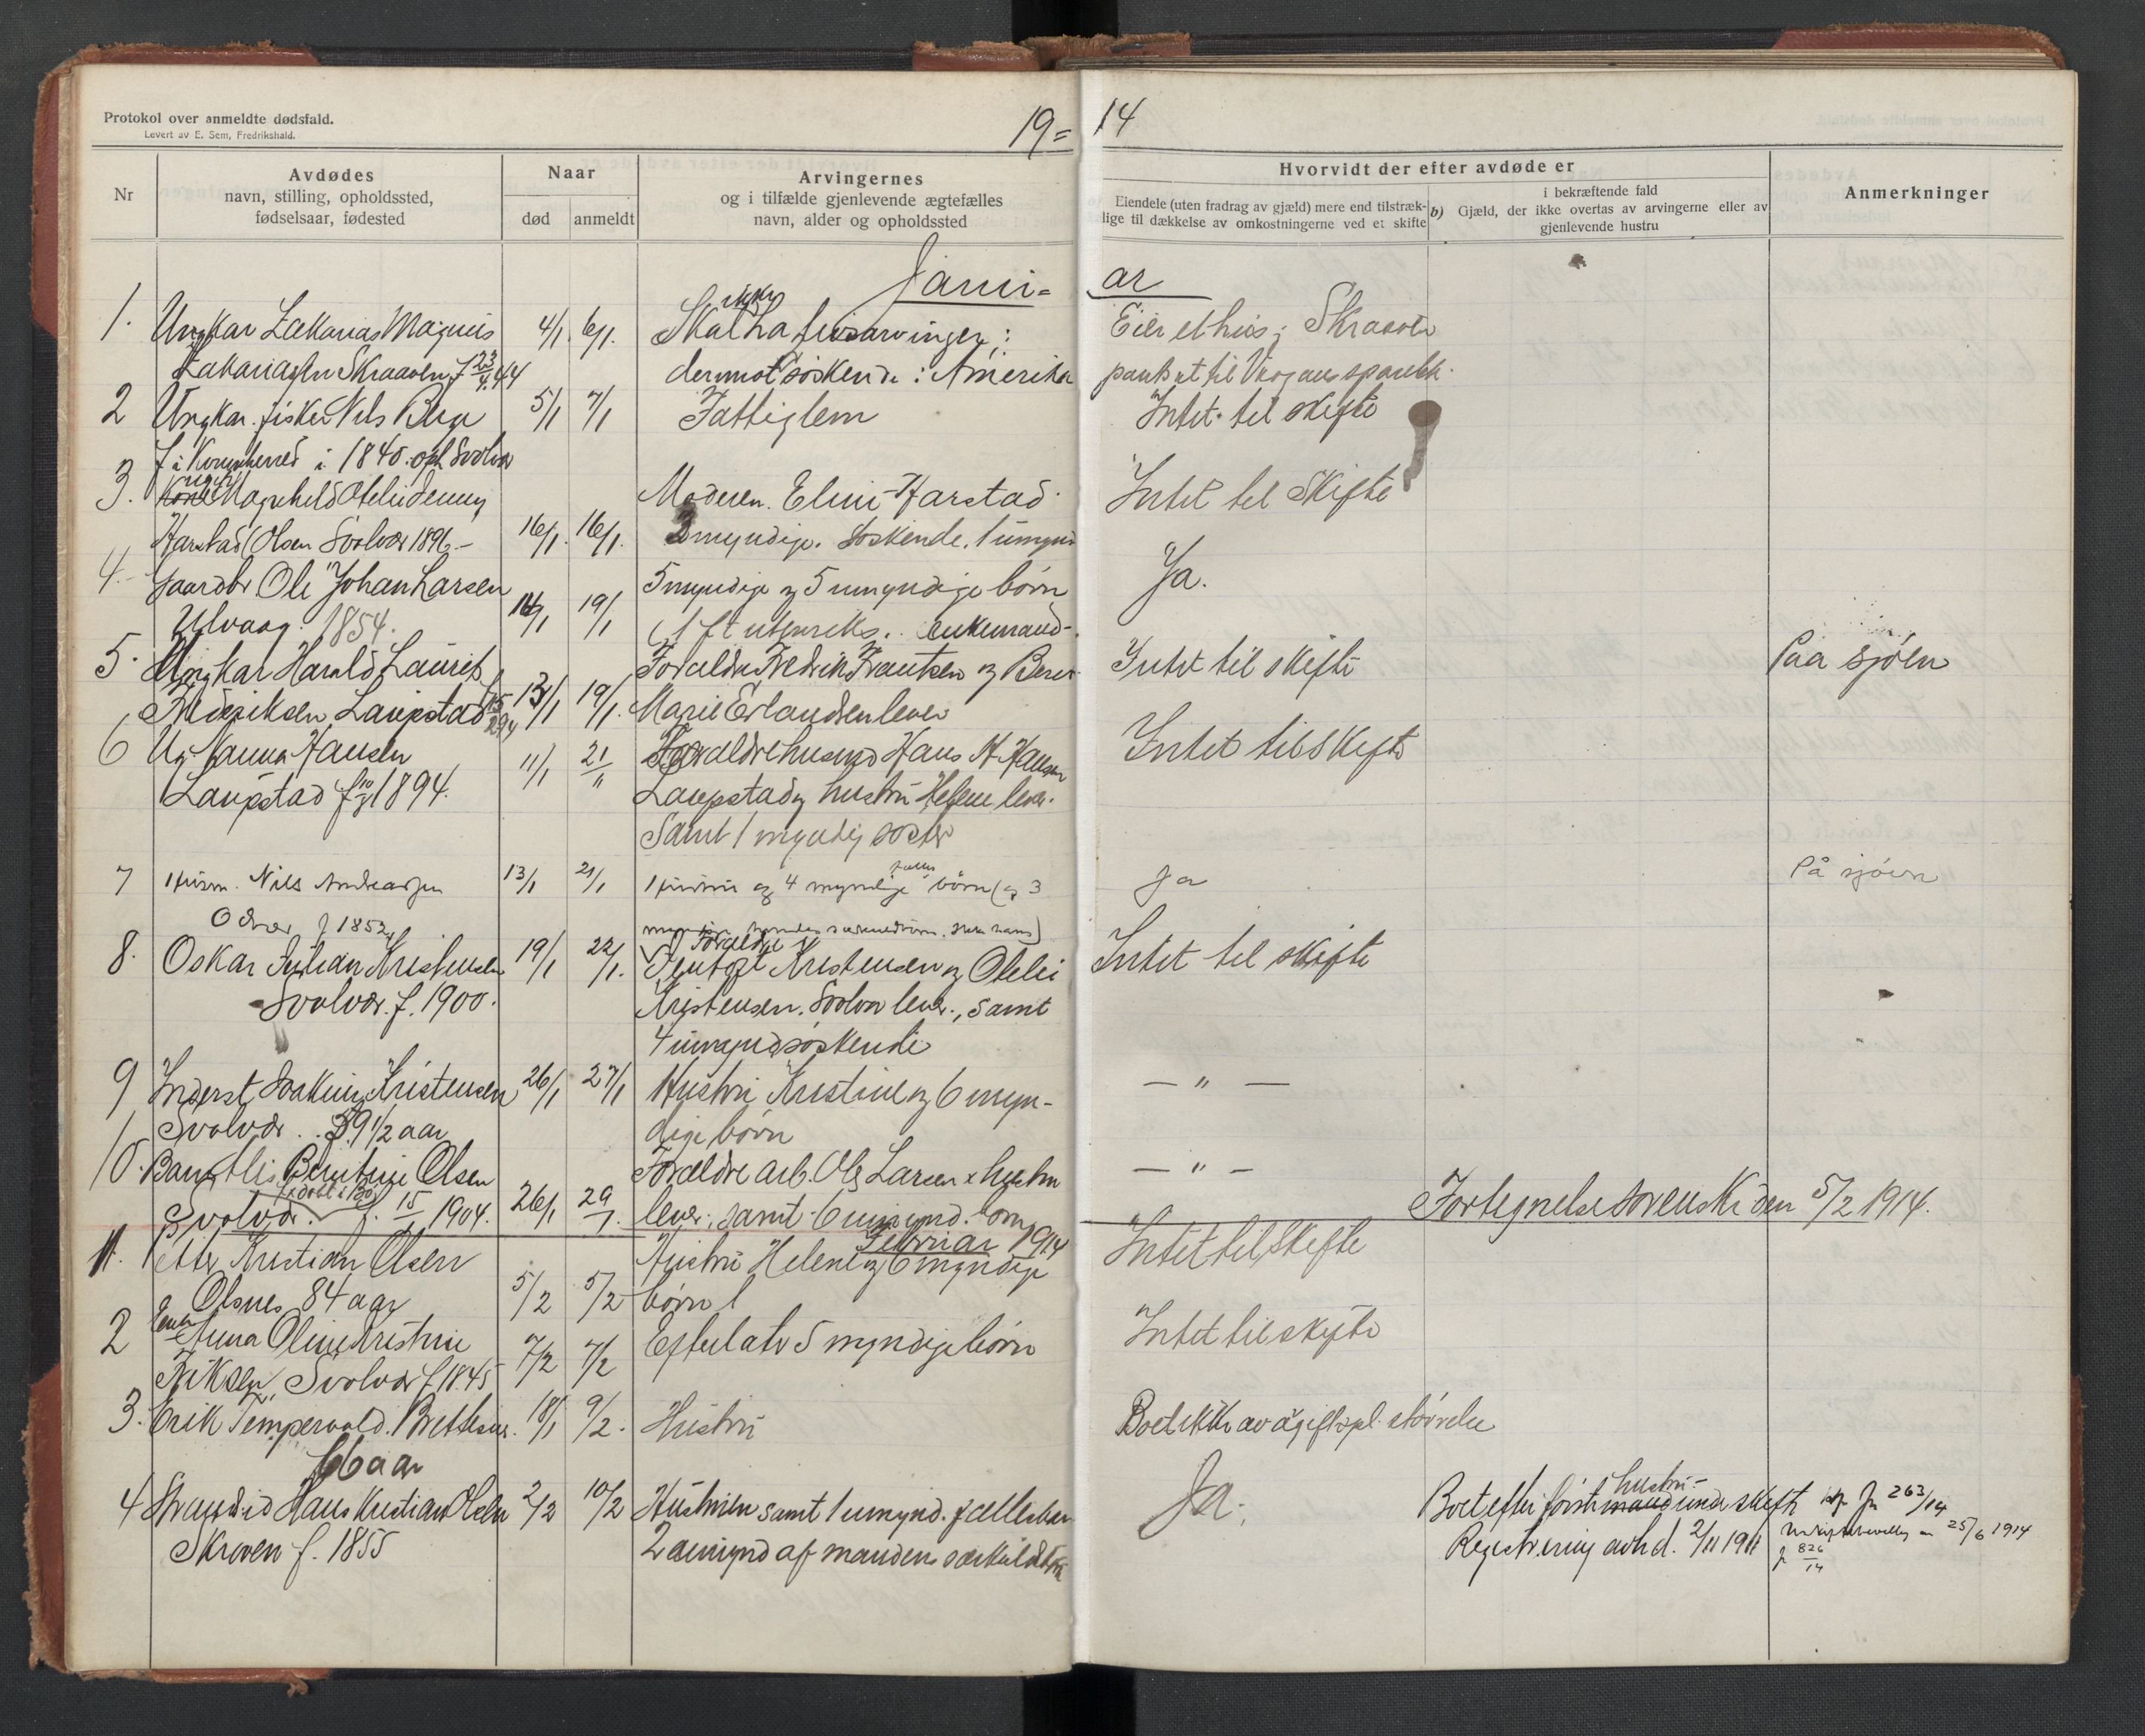 Protokol over anmeldte dødsfald.
Levert av E. Sem, Fredrikshald.
19= 14
Nr
Avdødes
navn, stilling, opholdssted,
fødselsaar, fødested
Naar
død
anmeldt
Arvingernes
og i tilfælde gjenlevende ægtefælles
navn, alder og opholdssted
Hvorvidt der efter avdøde er
Eiendele (uten fradrag av gjæld) mere end tilstræk-
lige til dækkelse av omkostningerne ved et skifte
i bekræftende fald
b) Gjæld, der ikke overtas av arvingerne eller av
gjenlevende hustru
Anmerkninger
Janu= ar
1. Ungkar Zakarias Magnus 4/1 6/1. Skal ikke ha livsarvinger; Eier et hus i Skraaven
Zakariassen Skraaven f 23/4 44 derimot søskende i Amerika pantsat til Vaagans sparebk.
2 Ungkar fisker Nils Berg 5/1 7/1 Fattiglem Intet til skifte
f i i 1840. oph Svolvær
3. Magnhild Otelie Jenny Moderen Eline Harstad Intet til Skifte
Harstad (Olsen Svolvær 1896 16/1. 16/1. 2 myndige søskende, 1 umynd
4. Gaardbr Ole Johan Larsen 5 myndige og 5 umyndige børn Ja.
Ulvaag. 1854. 14/1 19/1 enkemand
5. Ungkar Harald Laurits Forældre Fredrik Frantsen og Intet til skifte Paa sjøen
Fredriksen Laupstad 13/1 19/1. Marie Erlandsen lever
6 Ug. Nanna Hansen 11/1 21/" Forældre husmd Hans H Hansen Intet til Skifte
Laupstad f 1894. Laupstad og hustru Helene lever.
Samt 1 myndig søster
7 Husm. Nils Andreassen 13/1 21/1 Hustru og 4 myndige fælles børn (og 3 Ja På sjøen
f 1852
8. Oskar Julian Kristensen 19/1 22/1. Forældre Kristensen og Otelie Intet til skifte
Svolvær f. 1900. Kristensen. Svolvær lever., samt
4 umynd søskende
9 Inderst Joakim Kristensen 26/1 27/1 Hustru Kristine og 6 myn- — " —
Svolvær . 59 1/2 aar dige børn
10. Barnet Bentine Olsen Forældre arb. Ole Larsen x hustru — " —
Svolvær. f. 15/1 1904. 26/1 29/1. lever, samt 6 umynd. Fortegnelse sorenskr den 5/2 1914.
Februar 1914
11. Peter Kristian Olsen Hustru Helene og 6 myndige Intet til Skifte
Olsnes 84 aar 5/2 5/2 børn
2 Enke Anna Oline Kristine Efterlatr 5 myndige børn Intet til skifte
Eriksen, Svolvær f 1845 7/2 7/2
3. Erik Tempervold. Brettesnes. 18/1 9/2. Hustru Boet ikke av agiftspl. størrelse
66 aar
4 Strands. Hans Kristian Olsen 2/2 10/2 Hustruen samt 1 umynd. fællesbarn Ja. Boet efter første hustru under skifte 263/14
Skroven f. 1855 2 umynd af mandens særkuldbørn Registrering avh d. 2/11 1911 25/6 1914
J 826/14